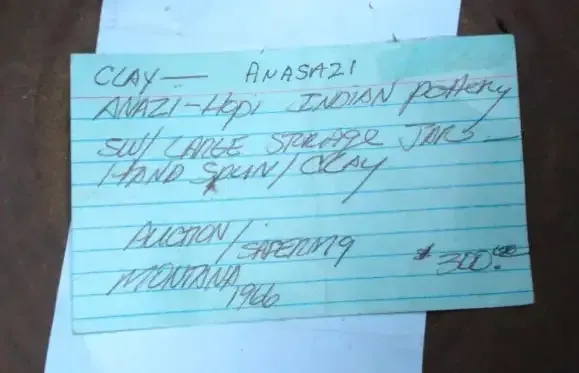 CLAY — ANASAZI
ANAZI-Hopi INDIAN pottery
SW/ LARGE STORAGE JARS
HAND SPUN/CLAY
AUCTION/
MONTANA
1966
$300.00